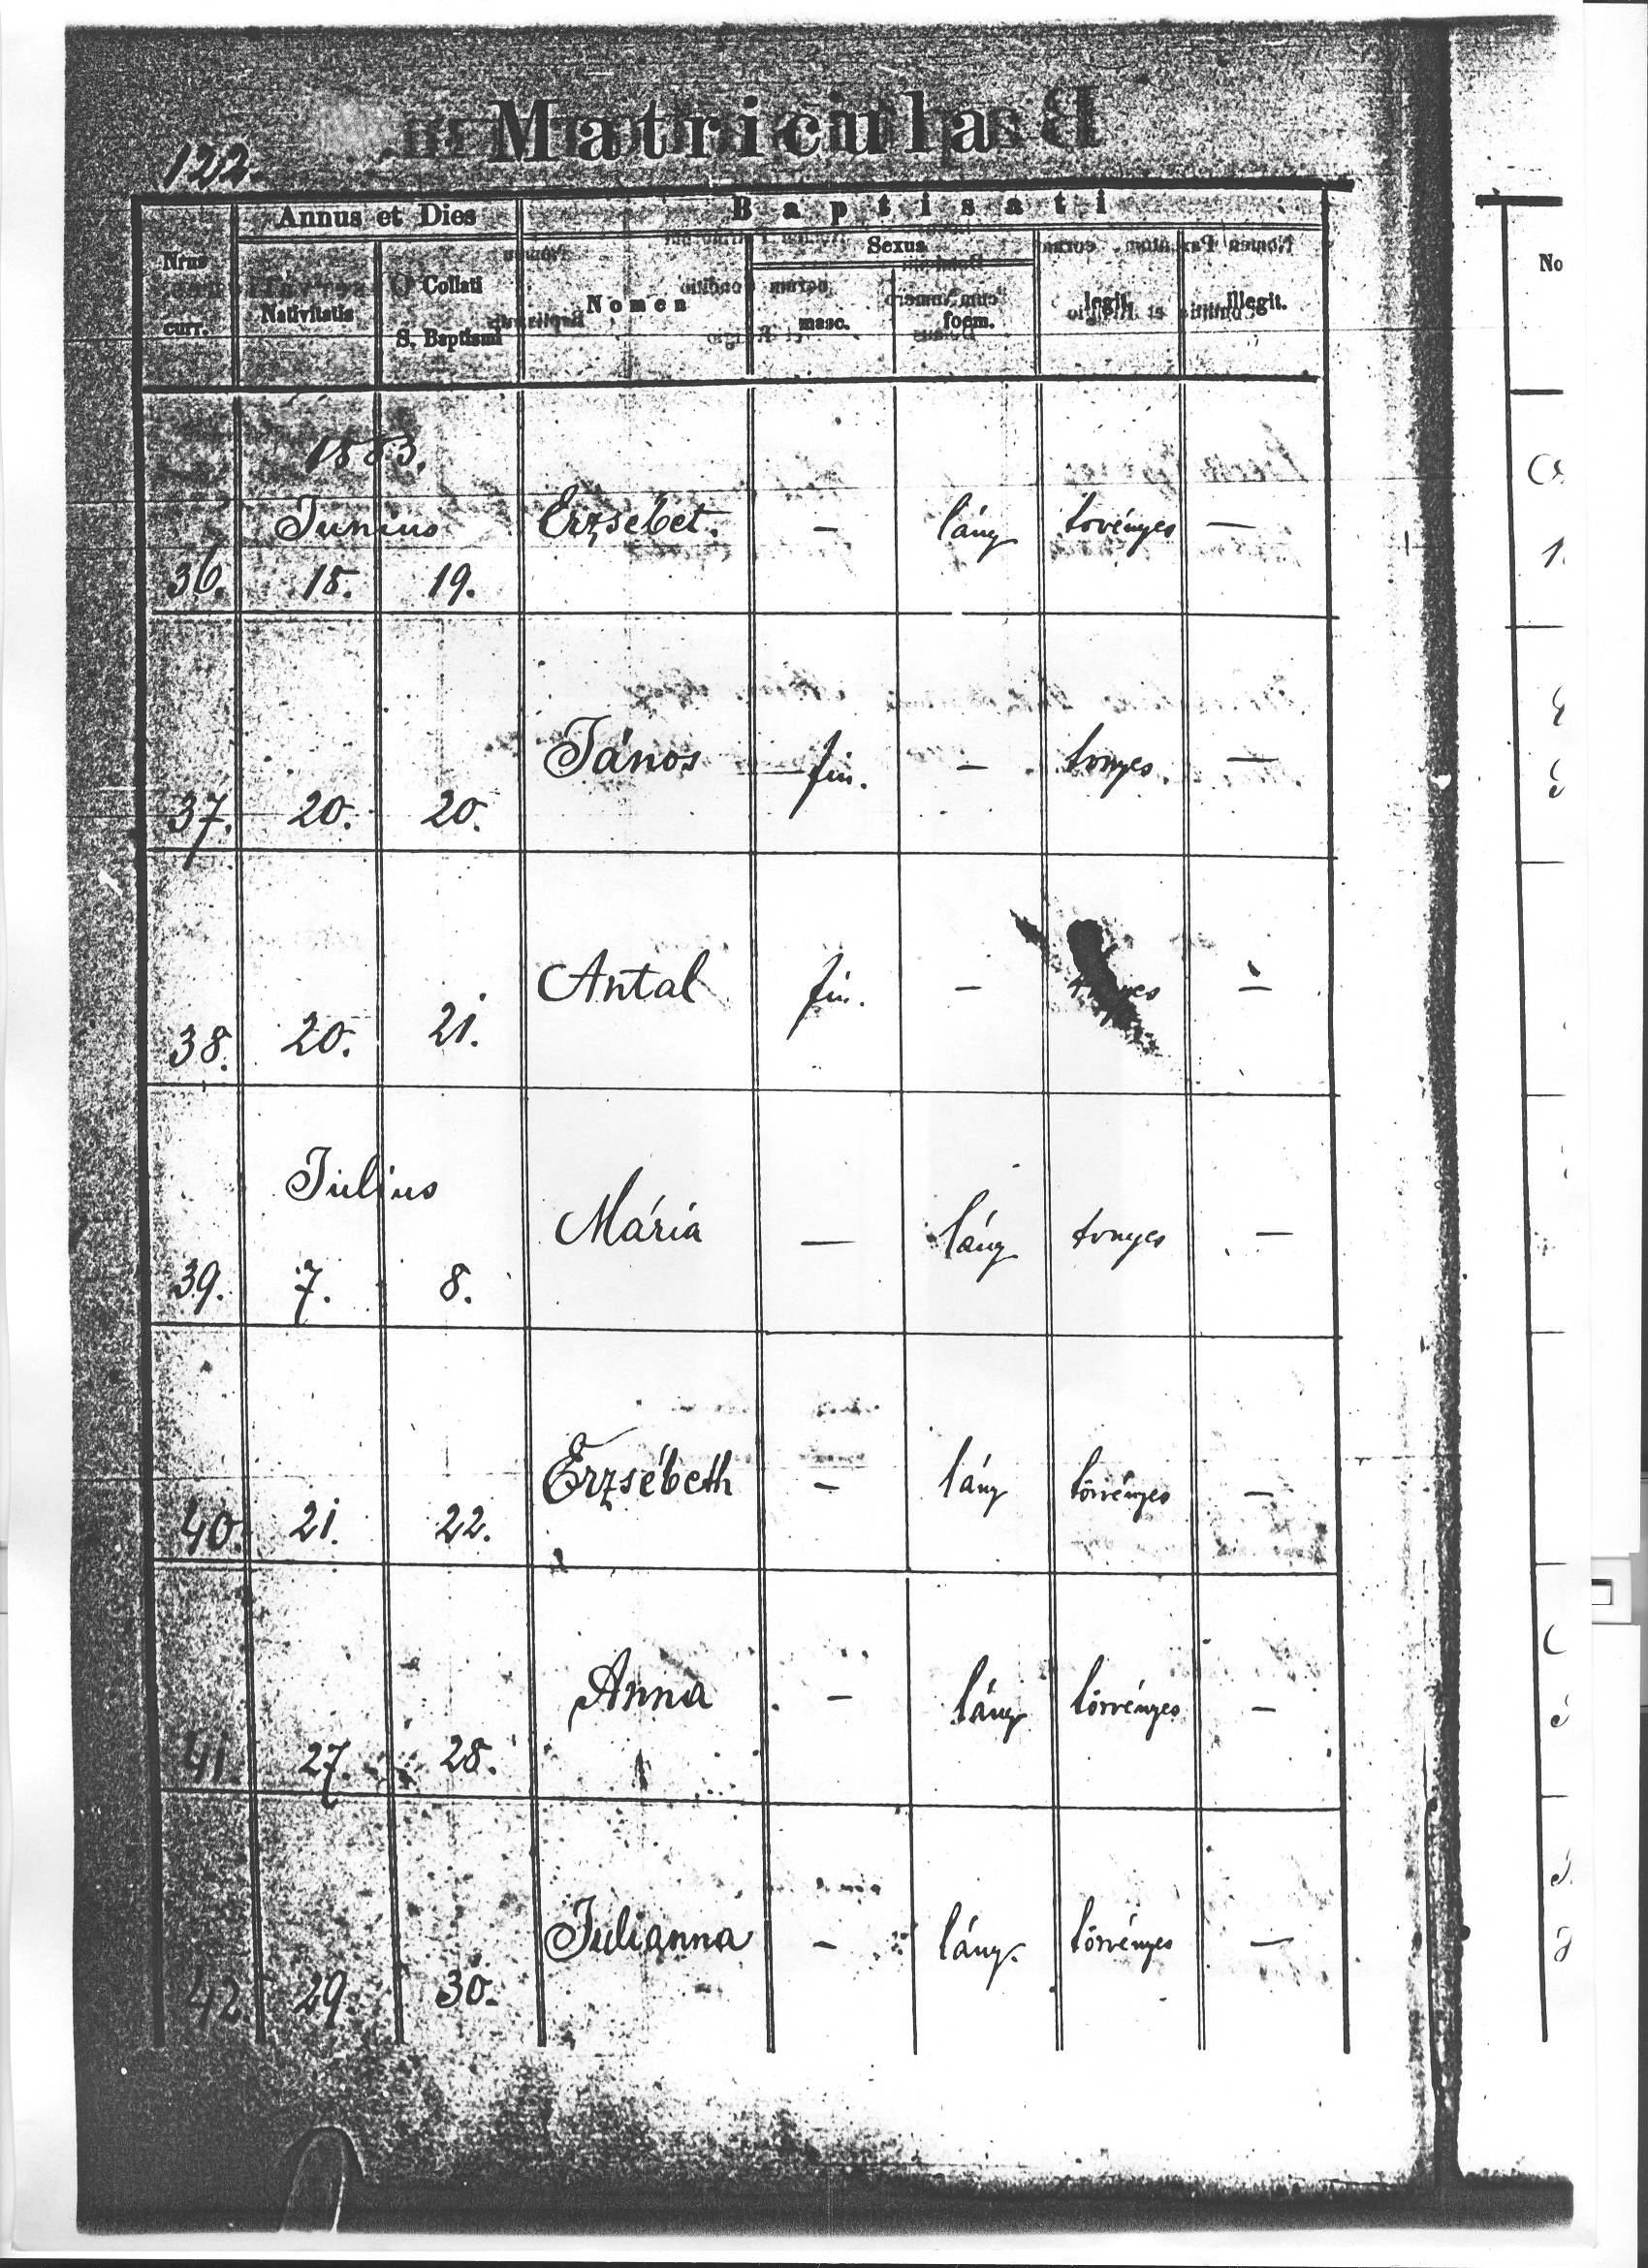 Matricula
122.
Annus et Dies
Baptisati
Nrus
curr.
Nativitatis
Collati
S. Baptismi
Nomen
Sexus
masc.
foem.
legit.
illegit.
1883.
Junius
36. 18. 19. Erzsébet. – lány tovényes —
37. 20. 20. János fiu. – tvnyes. —
38. 20. 21. Antal fiu. – –
Julius
39. 7. 8. Mária — lány tvnyes —
40. 21. 22. Erzsébeth – lány törvényes –
41. 27. 28. Anna – lány törvényes –
42. 29. 30. Julianna – lány. törvényes —
No